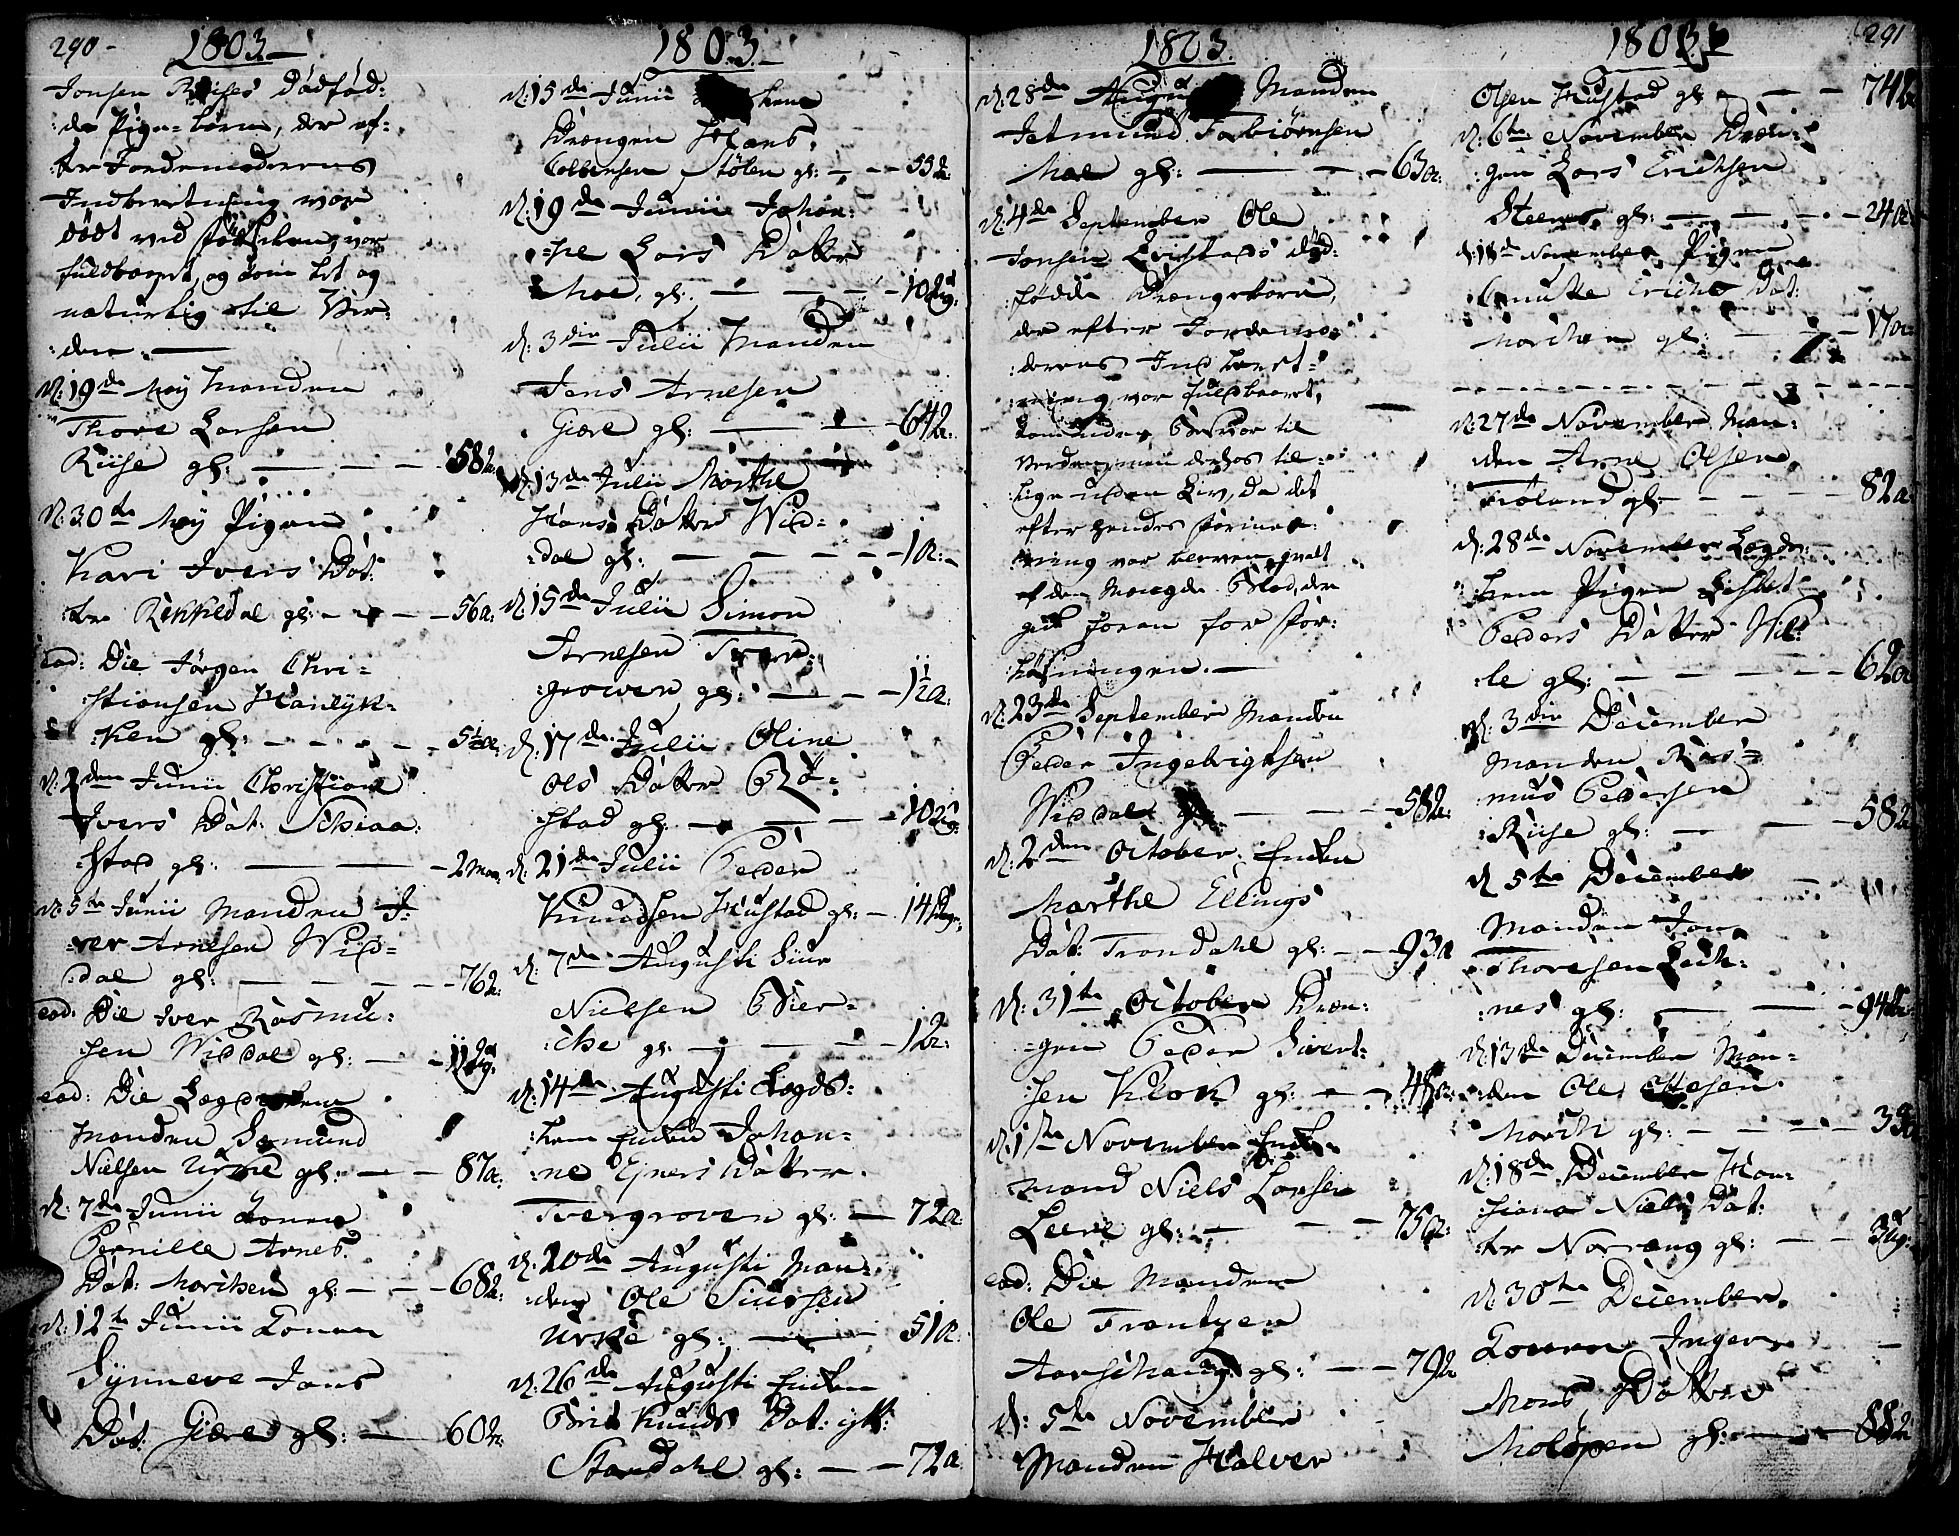 290 -
1803 -
Jonsen Riises Dödföd:
:de Pige-barn, der ef:
:ter Jordemoderens
Indberetning var
dödt ved
fuldbaaret, og kom let og
naturlig til Ver:
:den. —
d: 19de Maij Manden
Thore Larsen
Riise gl: — — — 58 a:
d: 30te Maij Pigen
Kari Ivers Dat:
:ter Rekkedal gl: — — — 56 a:
eod: Die Jørgen Chri:
:stiansen Hareidk:
:ken gl: — — — —
d: 2den Junii Christiane
Ivers Dat: Schiaa:
:stad gl: — — — 2 Maa:
d: 5te Junii Manden I:
:ver Arnesen Wid:
:dal gl: — — — — 76 a:
eod: Die Iver Rasmu:
:sen Widdal gl: — —
eod: Die Lægdslem
Manden Samund
Nielsen Urke gl: — — 87 a:
d: 7de Junii Konen
Pernille Arnes
Dat: Marchen gl: — — — 68 a:
d: 12te Junii Konen
Synneve Jons
Dat: Giære gl: — 60 a:
1803 -
d: 15de Junii
Drængen Hans
Colbensen Stølen gl: — — 55 a:
d: 19de Junii Johan:
:ne Lars Datter
Moe, gl: — — — 10 Ug:
d: 3die Julii Manden
Jens Arnesen
Giære gl: — — 64 a:
d: 13de Julii Marthe
Hans Datter Wid:
:dal gl: — — — — — 1 a:
d: 15de Julii Simon
Arnesen Tver:
:groven gl: — — — 1½ a:
d: 17de Julii Oline
Ols Datter
:stad gl: — — — 10 Ug:
d: 21de Julii Peder
Knudsen Hustad gl: — 14 Dage
d: 7de Augusti Siur
Nielsen Bier:
:che gl: — — — 12 a:
d: 14de Augusti Lægds:
:lem Enken Johan:
:ne Ejners Datter
Tvergroven gl: — 72 a:
d: 20de Augusti Man:
:den Ole Siursen
Urke gl: — — 51 a:
d: 26de Augusti Enken
Brit Knuds Dat:
Standahl gl: — — 72 a:
1803.
d: 28de Augusti Manden
Jetmund Torbiørnsen
Moe gl: — — — 63 a:
d: 4de September Ole
Jonsen Qvistads död:
:fødde Drengebarn,
der efter Jordemo:
:derens Indberet:
:ning var fuldbaaret,
kom under til
Verden, men derhos til:
:lige uden Liv, da det
efter hendes Formee:
:ning var bleven qvalt
af den Mængde Blod, der
gik foran for For:
:løsningen. —
d: 23de September Manden
Peder Ingebrigtsen
Widdal gl: — — — 58 a:
d: 2den October Enken
Marthe Ellings
Dat: Trondahl gl: — — 93 a:
d: 31te October Dræn:
:gen Peder Sivert:
:sen Klok gl: — —
d: 1te November Enke:
:mand Niels Larsen
Leere gl: — — — 75 a:
eod: Die Manden
Ole Frantzen
Aarschoug gl: — — 79 a:
d: 5te November
Manden Halver
1803
291
Olsen Hustad gl: — — — 74 a:
d: 6te November Dræn:
:gen Lars Erichsen
Steens gl: — — — — 24 a:
d: 18de November Pigen
Gnutte Erichs Dat:
Marchen gl: — — — 17 a:
d: 27de November Man:
:den Arne Olsen
Fioland gl: — — — 82 a:
d: 28de November Lægds:
:lem Pigen Lisbet
Peders Datter Wil:
:le gl: — — — — 62 a:
d: 3die December
Manden Ras:
:mus Pedersen
Riise gl: — — 58 a:
d: 5te December
Manden Jon
Thoresen Leik:
:nes gl: — — — 94 a:
d: 13de December Man:
:den Ole Ottesen
March gl: — — —
d: 18de December Han:
:siana Niels Dat:
:ter Norang gl: — — 3 Ug:
d: 30te December
Konen Inger
Mons Datter
Moløen gl: — — 88 a: